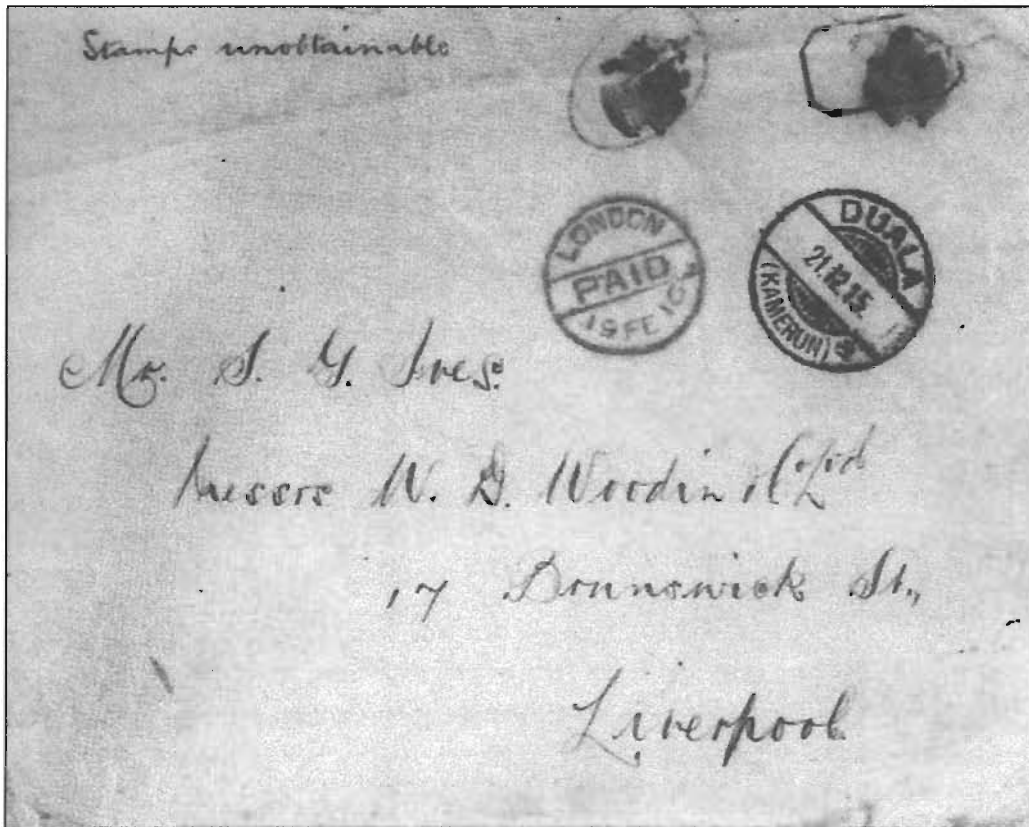 Stamps unobtainable
LONDON
PAID
19 FE 16
DUALA
21.12.15.
(KAMERUN)
a
Mr. S. G. Ives.
Messrs W. D. Woodin & Co Ltd
17 Brunswick St.,
Liverpool.